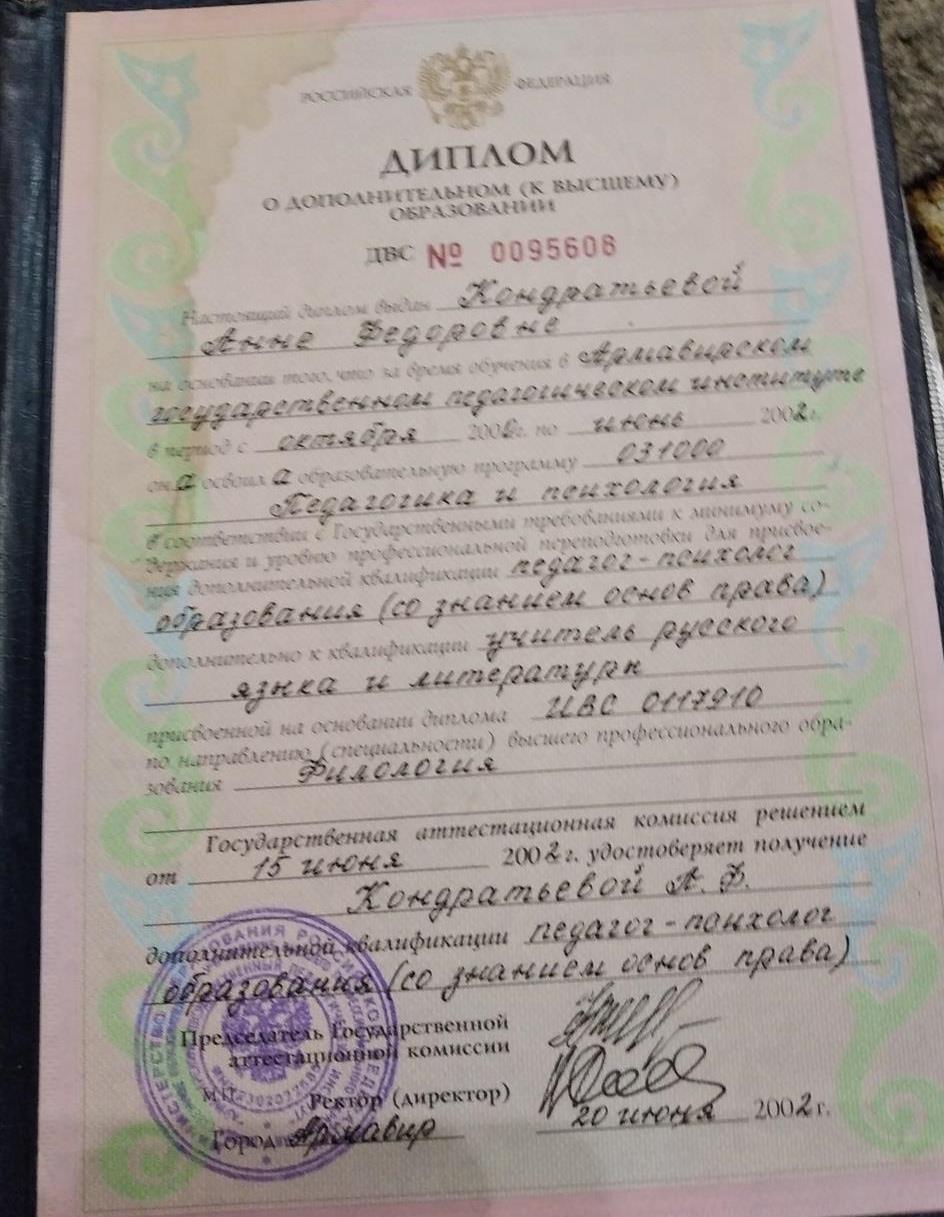 РОССИЙСКАЯ ФЕДЕРАЦИЯ
ДИПЛОМ
О ДОПОЛНИТЕЛЬНОМ (К ВЫСШЕМУ)
ОБРАЗОВАНИИ
ДВС № 0095608
Настоящий диплом выдан Кондратьевой
Анне Федоровне
на основании того, что за время обучения в Армавирском
государственном педагогическом институте
в период с октября по июнь 2002г.
он а освоил а образовательную программу 031000
Педагогика и психология
в соответствии с Государственными требованиями к минимуму со-
держания и уровню профессиональной переподготовки для присвое-
ния дополнительной квалификации педагог-психолог
образования (со знанием основ права)
дополнительно к квалификации учитель русского
языка и литературы
присвоенной на основании диплома ЦВС 0117910
по направлению (специальности) высшего профессионального обра-
зования Филология
Государственная аттестационная комиссия решением
от 15 июня 2002г. удостоверяет получение
Кондратьевой А. Ф.
дополнительной квалификации педагог-психолог
образования (со знанием основ права)
Председатель Государственной
аттестационной комиссии
М.П. Ректор (директор)
Город Армавир 20 июня 2002г.